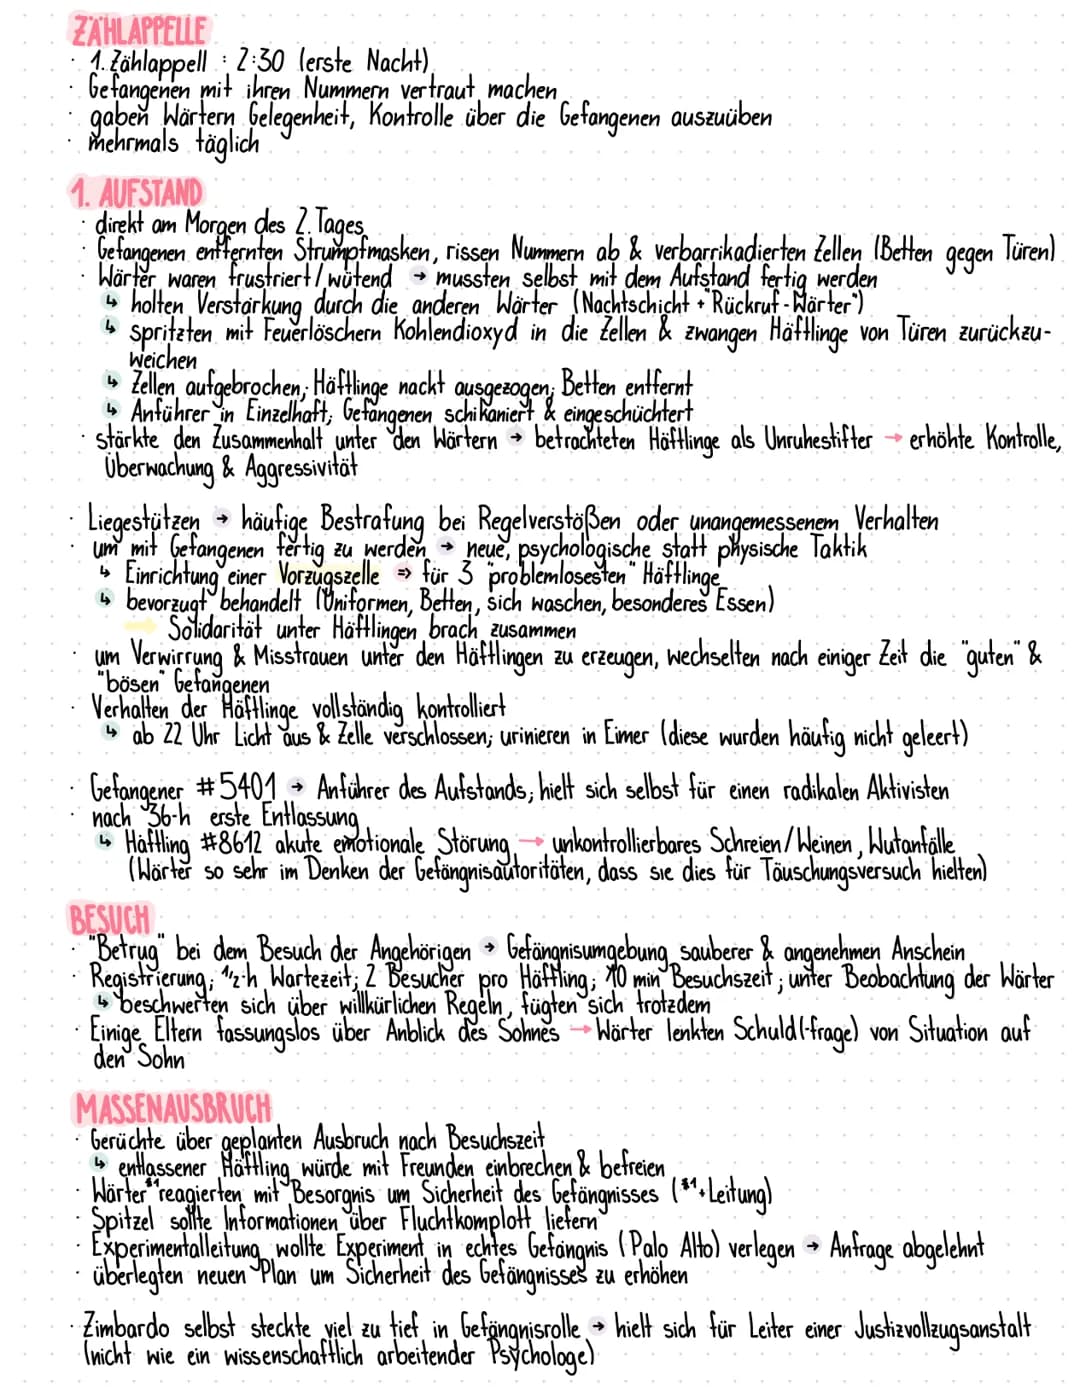 ZÄHLAPPELLE
· 1. Zählappell : 2:30 (erste Nacht)
· Gefangenen mit ihren Nummern vertraut machen
· gaben Wärtern Gelegenheit, Kontrolle über die Gefangenen auszuüben
· mehrmals täglich
1. AUFSTAND
· direkt am Morgen des 2. Tages
· Gefangenen entfernten Strumpfmasken, rissen Nummern ab & verbarrikadierten Zellen (Betten gegen Türen)
· Wärter waren frustriert/wütend → mussten selbst mit dem Aufstand fertig werden
↳ holten Verstärkung durch die anderen Wärter (Nachtschicht + "Rückruf-Wärter")
↳ spritzten mit Feuerlöschern Kohlendioxyd in die Zellen & zwangen Häftlinge von Türen zurückzu-
weichen
↳ Zellen aufgebrochen; Häftlinge nackt ausgezogen; Betten entfernt
↳ Anführer in Einzelhaft; Gefangenen schikaniert & eingeschüchtert
· stärkte den Zusammenhalt unter den Wärtern → betrachteten Häftlinge als Unruhestifter → erhöhte Kontrolle,
Überwachung & Aggressivität
· Liegestützen → häufige Bestrafung bei Regelverstößen oder unangemessenem Verhalten
· um mit Gefangenen fertig zu werden → neue, psychologische statt physische Taktik
↳ Einrichtung einer Vorzugszelle ⇒ für 3 "problemlosesten" Häftlinge
↳ bevorzugt behandelt (Uniformen, Betten, sich waschen, besonderes Essen)
→ Solidarität unter Häftlingen brach zusammen
· um Verwirrung & Misstrauen unter den Häftlingen zu erzeugen, wechselten nach einiger Zeit die "guten" &
"bösen" Gefangenen
· Verhalten der Häftlinge vollständig kontrolliert
↳ ab 22 Uhr Licht aus & Zelle verschlossen; urinieren in Eimer (diese wurden häufig nicht geleert)
· Gefangener #5401 → Anführer des Aufstands; hielt sich selbst für einen radikalen Aktivisten
· nach 36-h erste Entlassung
↳ Häftling #8612 akute emotionale Störung → unkontrollierbares Schreien/Weinen, Wutanfälle
(Wärter so sehr im Denken der Gefängnisautoritäten, dass sie dies für Täuschungsversuch hielten)
BESUCH
· "Betrug" bei dem Besuch der Angehörigen → Gefängnisumgebung sauberer & angenehmen Anschein
· Registrierung; ½-h Wartezeit; 2 Besucher pro Häftling; 10 min Besuchszeit; unter Beobachtung der Wärter
↳ beschwerten sich über willkürlichen Regeln, fügten sich trotzdem
· Einige Eltern fassungslos über Anblick des Sohnes → Wärter lenkten Schuld(-frage) von Situation auf
den Sohn
MASSENAUSBRUCH
· Gerüchte über geplanten Ausbruch nach Besuchszeit
↳ entlassener Häftling würde mit Freunden einbrechen & befreien
· Wärter*¹ reagierten mit Besorgnis um Sicherheit des Gefängnisses (*¹+Leitung)
· Spitzel sollte Informationen über Fluchtkomplott liefern
· Experimentalleitung wollte Experiment in echtes Gefängnis (Palo Alto) verlegen → Anfrage abgelehnt
· überlegten neuen Plan um Sicherheit des Gefängnisses zu erhöhen
· Zimbardo selbst steckte viel zu tief in Gefängnisrolle → hielt sich für Leiter einer Justizvollzugsanstalt
(nicht wie ein wissenschaftlich arbeitender Psychologe)